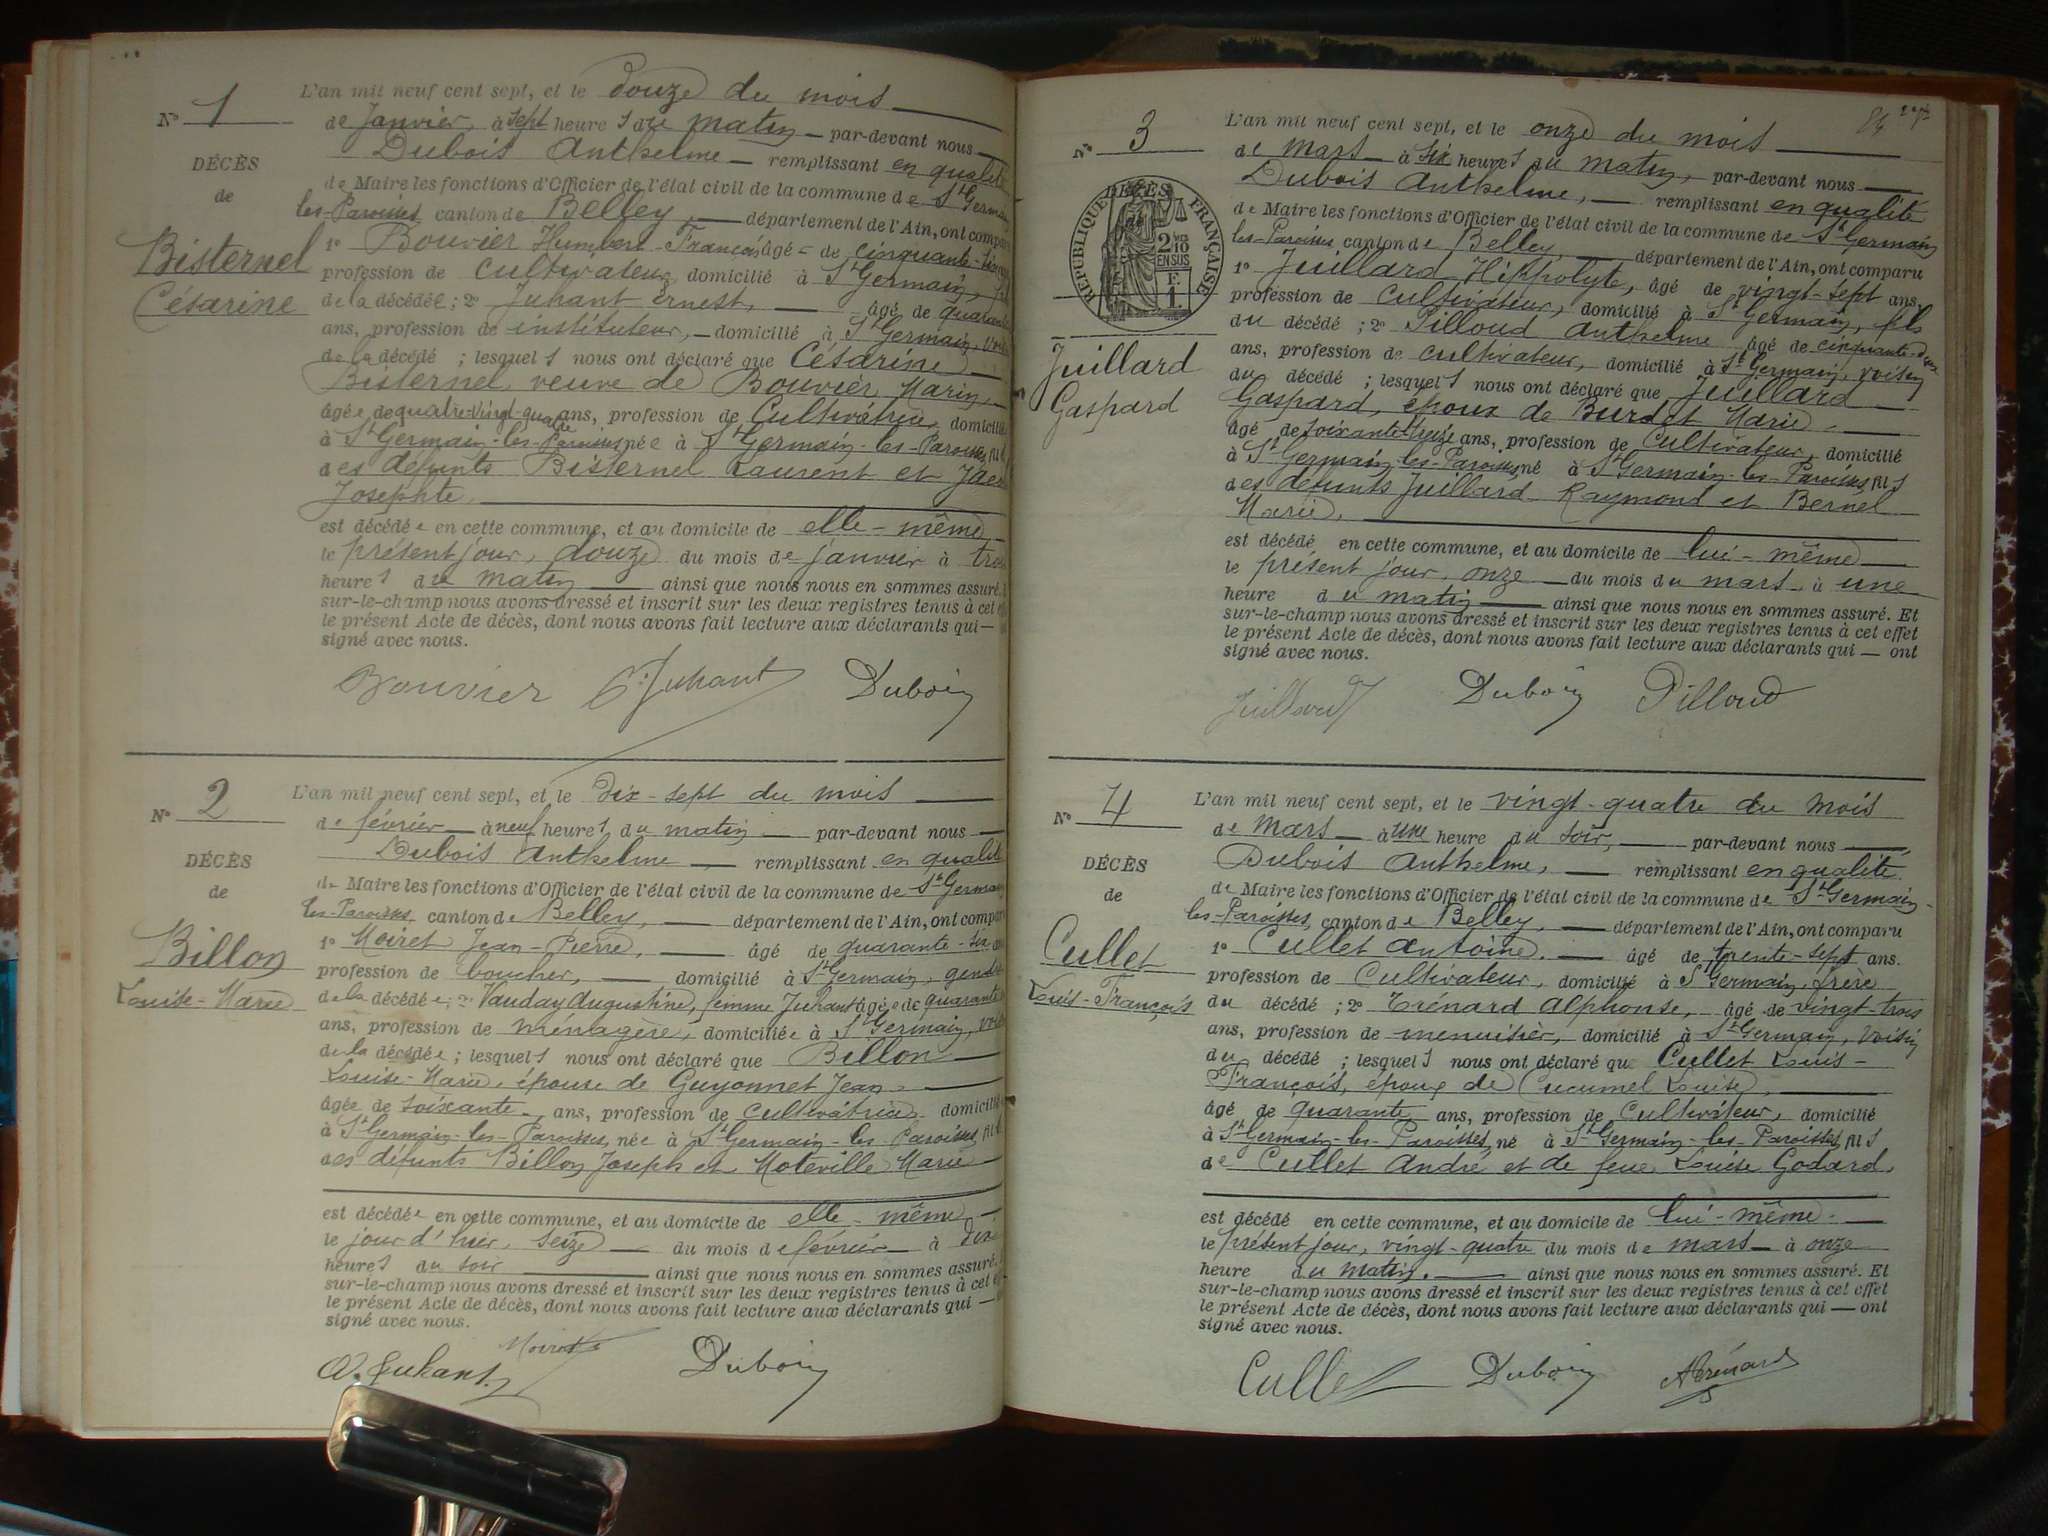 N° 1
DÉCÈS
de
Bisternel
Césarine
L'an mil neuf cent sept, et le douze du mois
de Janvier, à sept heures du matin par-devant nous
Dubois Anthelme remplissant en qualité
de Maire les fonctions d'Officier de l'état civil de la commune de St Germain
les-Paroisses canton de Belley, département de l'Ain, ont comparu
1° Bouvier Humbert-François âgé de cinquante-
profession de cultivateur domicilié à St Germain,
de la décédée; 2° Juhant Ernest, âgé de quarante
ans, profession de instituteur, domicilié à St Germain, voisin
de la décédé ; lesquels nous ont déclaré que Césarine
Bisternel veuve de Bouvier Marin,
âgée de quatre-vingt-quatre ans, profession de Cultivatrice, domicilié
à St Germain-les-Paroisses, née à St Germain-les-Paroisses, fille
des défunts Bisternel Laurent et
Josephte
est décédée en cette commune, et au domicile de elle-même,
le présent jour, douze du mois de janvier à trois
heures du matin ainsi que nous nous en sommes assuré.
sur-le-champ nous avons dressé et inscrit sur les deux registres tenus à cet
le présent Acte de décès, dont nous avons fait lecture aux déclarants qui —
signé avec nous.
Bouvier E. Juhant Dubois
N° 2
DÉCÈS
de
Billon
Louise-Marie
L'an mil neuf cent sept, et le dix-sept du mois
de février à neuf heures du matin par-devant nous
Dubois Anthelme remplissant en qualité
de Maire les fonctions d'Officier de l'état civil de la commune de St Germain
les-Paroisses canton de Belley, département de l'Ain, ont comparu
1° Moiret Jean-Pierre, âgé de quarante-six ans
profession de boucher, domicilié à St Germain, gendre
de la décédée; 2° Vauday Augustine, femme Juhant âgée de quarante
ans, profession de ménagère, domiciliée à St Germain, voisine
de la décédée ; lesquels nous ont déclaré que Billon
Louise-Marie, épouse de Guyonnet Jean
âgée de soixante ans, profession de cultivatrice domicilié
à St Germain-les-Paroisses, née à St Germain-les-Paroisses, fille
des défunts Billon Joseph et Moteville Marie
est décédée en cette commune, et au domicile de elle-même,
le jour d'hier, seize du mois de février à dix
heures du soir ainsi que nous nous en sommes assuré.
sur-le-champ nous avons dressé et inscrit sur les deux registres tenus à cet
le présent Acte de décès, dont nous avons fait lecture aux déclarants qui —
signé avec nous.
A. Juhant. Moiret Dubois
84
N° 3
RÉPUBLIQUE FRANÇAISE
2 10
EN SUS
F.
1
Juillard
Gaspard
L'an mil neuf cent sept, et le onze du mois
de mars à six heures du matin, par-devant nous
Dubois Anthelme, remplissant en qualité
de Maire les fonctions d'Officier de l'état civil de la commune de St Germain
les-Paroisses, canton de Belley, département de l'Ain, ont comparu
1° Juillard Hippolyte, âgé de vingt-sept ans,
profession de cultivateur, domicilié à St Germain, fils
du décédé ; 2° Pilloud Anthelme âgé de cinquante-deux
ans, profession de cultivateur, domicilié à St Germain, voisin
du décédé ; lesquels nous ont déclaré que Juillard
Gaspard, époux de Burdet Marie
âgé de soixante-treize ans, profession de Cultivateur, domicilié
à St Germain-les-Paroisses, né à St Germain-les-Paroisses, fils
des défunts Juillard Raymond et Bernel
Marie,
est décédé en cette commune, et au domicile de lui-même
le présent jour, onze du mois du mars à une
heure du matin ainsi que nous nous en sommes assuré. Et
sur-le-champ nous avons dressé et inscrit sur les deux registres tenus à cet effet
le présent Acte de décès, dont nous avons fait lecture aux déclarants qui — ont
signé avec nous.
Juillard Dubois Pilloud
N° 4
DÉCÈS
de
Cullet
Louis-François
L'an mil neuf cent sept, et le vingt-quatre du mois
de mars à une heure du soir, par-devant nous
Dubois Anthelme, remplissant en qualité
de Maire les fonctions d'Officier de l'état civil de la commune de St Germain
les-Paroisses, canton de Belley, département de l'Ain, ont comparu
1° Cullet Antoine. âgé de trente-sept ans.
profession de Cultivateur, domicilié à St Germain, frère
du décédé ; 2° Trénard Alphonse, âgé de vingt-trois
ans, profession de menuisier, domicilié à St Germain, voisin
du décédé ; lesquels nous ont déclaré qu Cullet Louis-
François, époux de Cucumel Louise,
âgé de quarante ans, profession de Cultivateur, domicilié
à St Germain-les-Paroisses, né à St Germain-les-Paroisses, fils
de Cullet André et de feue Louise Godard,
est décédé en cette commune, et au domicile de lui-même.
le présent jour, vingt-quatre du mois de mars à onze
heure du matin. ainsi que nous nous en sommes assuré. Et
sur-le-champ nous avons dressé et inscrit sur les deux registres tenus à cet effet
le présent Acte de décès, dont nous avons fait lecture aux déclarants qui — ont
signé avec nous.
Cullet Dubois ATrénard